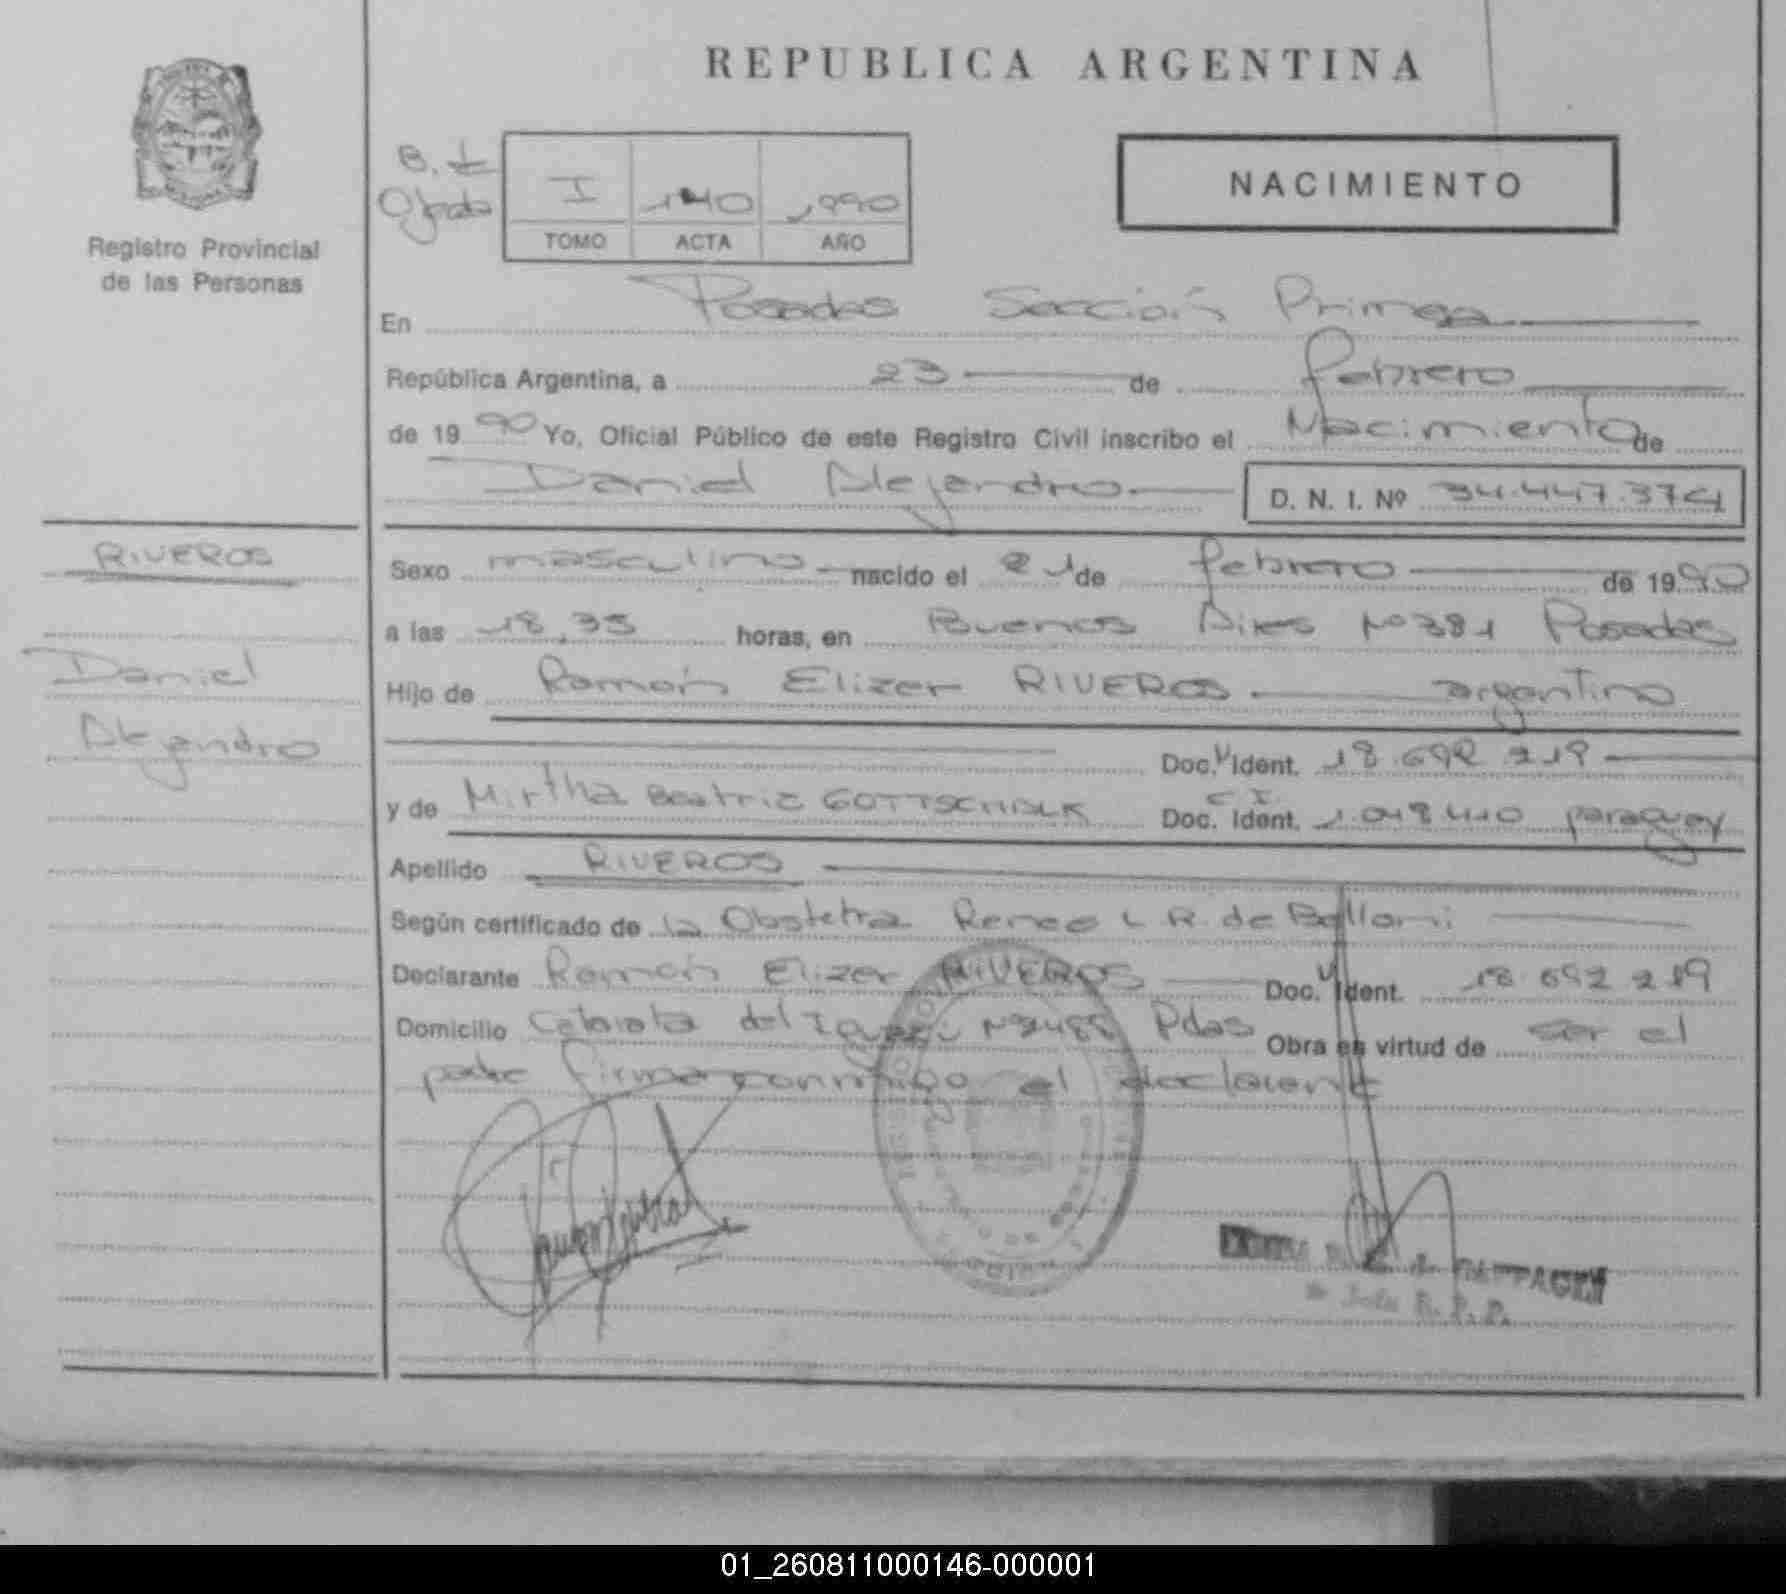 REPUBLICA ARGENTINA
Registro Provincial
de las Personas
I 140 1990
TOMO ACTA AÑO
NACIMIENTO
En Posadas Sección Primera
República Argentina, a 23 de febrero
de 1990 Yo, Oficial Público de este Registro Civil inscribo el Nacimiento de
Daniel Alejandro D. N. I. Nº 34.447.374
RIVEROS
Daniel
Alejandro
Sexo masculino nacido el 21 de febrero de 1990
a las 18,35 horas, en Buenos Aires Nº 381 Posadas
Hijo de Ramón Elizer RIVEROS argentino
Doc. Ident. 18.692.219
y de Mirtha Beatriz GOTTSCHALK C.I. Doc. Ident. 1.048.410 paraguay
Apellido RIVEROS
Según certificado de la Obstetra Renee L. R. de Balloni
Declarante Ramón Elizer RIVEROS Doc. Ident. 18.692.219
Domicilio Catarata del Iguazú Nº 2488 Pdas Obra en virtud de ser el
padre firma conmigo el declarante
01_260811000146-000001